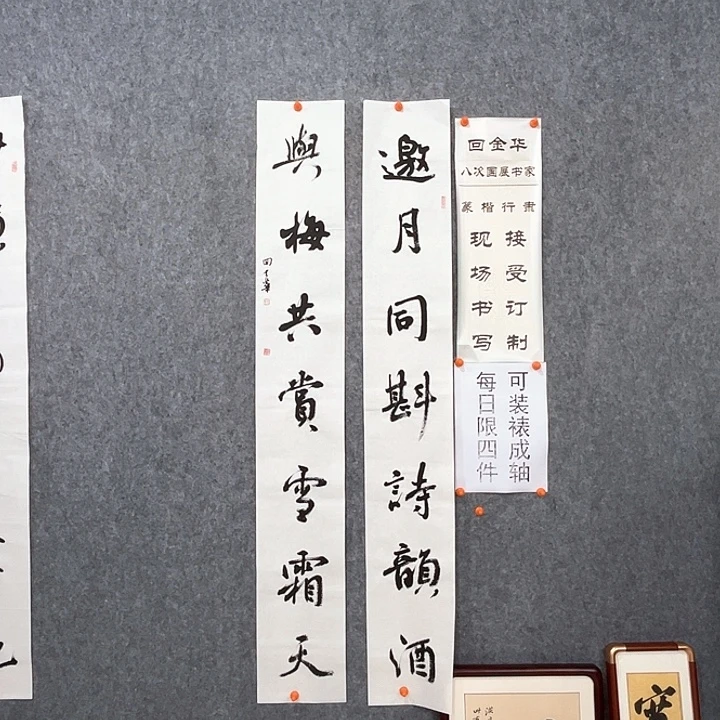 回金华
八次国展书家
篆楷行隶
接受订制
现场书写
可装裱成轴
每日限四件
邀月同斟詩韻酒
與梅共賞雪霜天
回金華